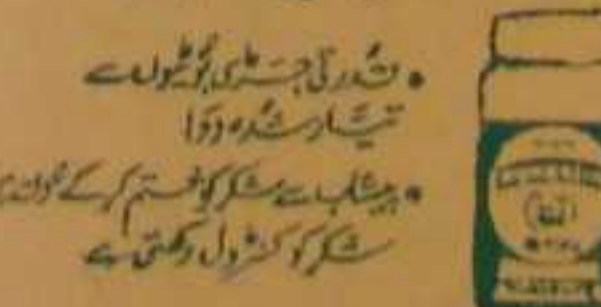 • قدرتی جڑی بوٹیوں سے
تیار شدہ دوا
• پیشاب سے شکر کو ختم کر کے
شکر کو کنٹرول رکھتی ہے